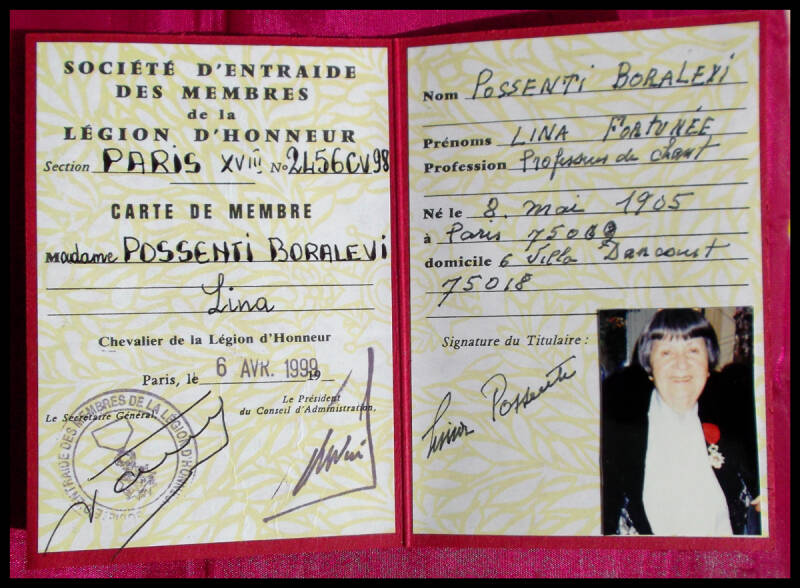 SOCIÉTÉ D'ENTRAIDE
DES MEMBRES
de la
LÉGION D'HONNEUR
Section PARIS XVIII No 2456CV98
CARTE DE MEMBRE
Madame POSSENTI BORALEVI
Lina
Chevalier de la Légion d'Honneur
Paris, le 6 AVR. 1999 19
Le Secrétaire Général,
Le Président
du Conseil d'Administration,
D'ENTRAIDE DES MEMBRES DE LA LÉGION D'HONNEUR
Nom POSSENTI BORALEVI
Prénoms LINA FORTUNÉE
Profession Professeur de chant
Né le 8 mai 1905
à Paris
domicile 6 Villa Dancourt
75018
Signature du Titulaire :
Lina Possenti